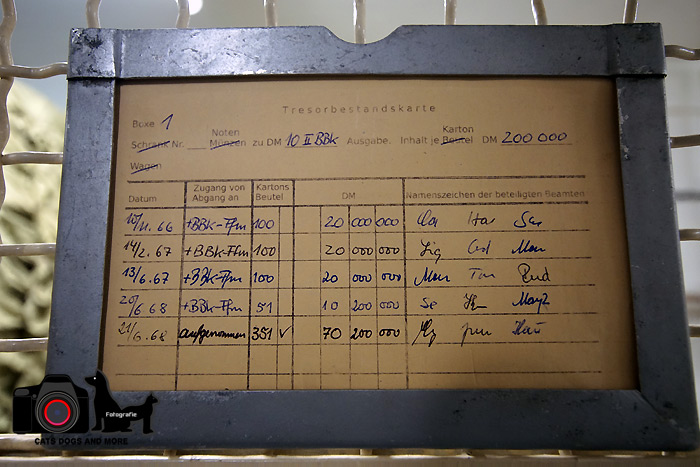 Tresorbestandskarte
Boxe 1
Noten Karton
Schrank Nr. Münzen zu DM 10 II BBk Ausgabe. Inhalt je Beutel DM 200 000
Wagen
Zugang von Kartons
Datum Abgang an Beutel DM Namenszeichen der beteiligten Beamten
10/11. 66 +BBk-Ffm 100 20 000 000
14/2. 67 +BBk-Ffm 100 20 000 000
13/6. 67 +BBk-Ffm 100 20 000 000
20/6 68 +BBk-Ffm 51 10 200 000
21/6. 68 aufgenommen 351 ✓ 70 200 000
Fotografie
CATS DOGS AND MORE